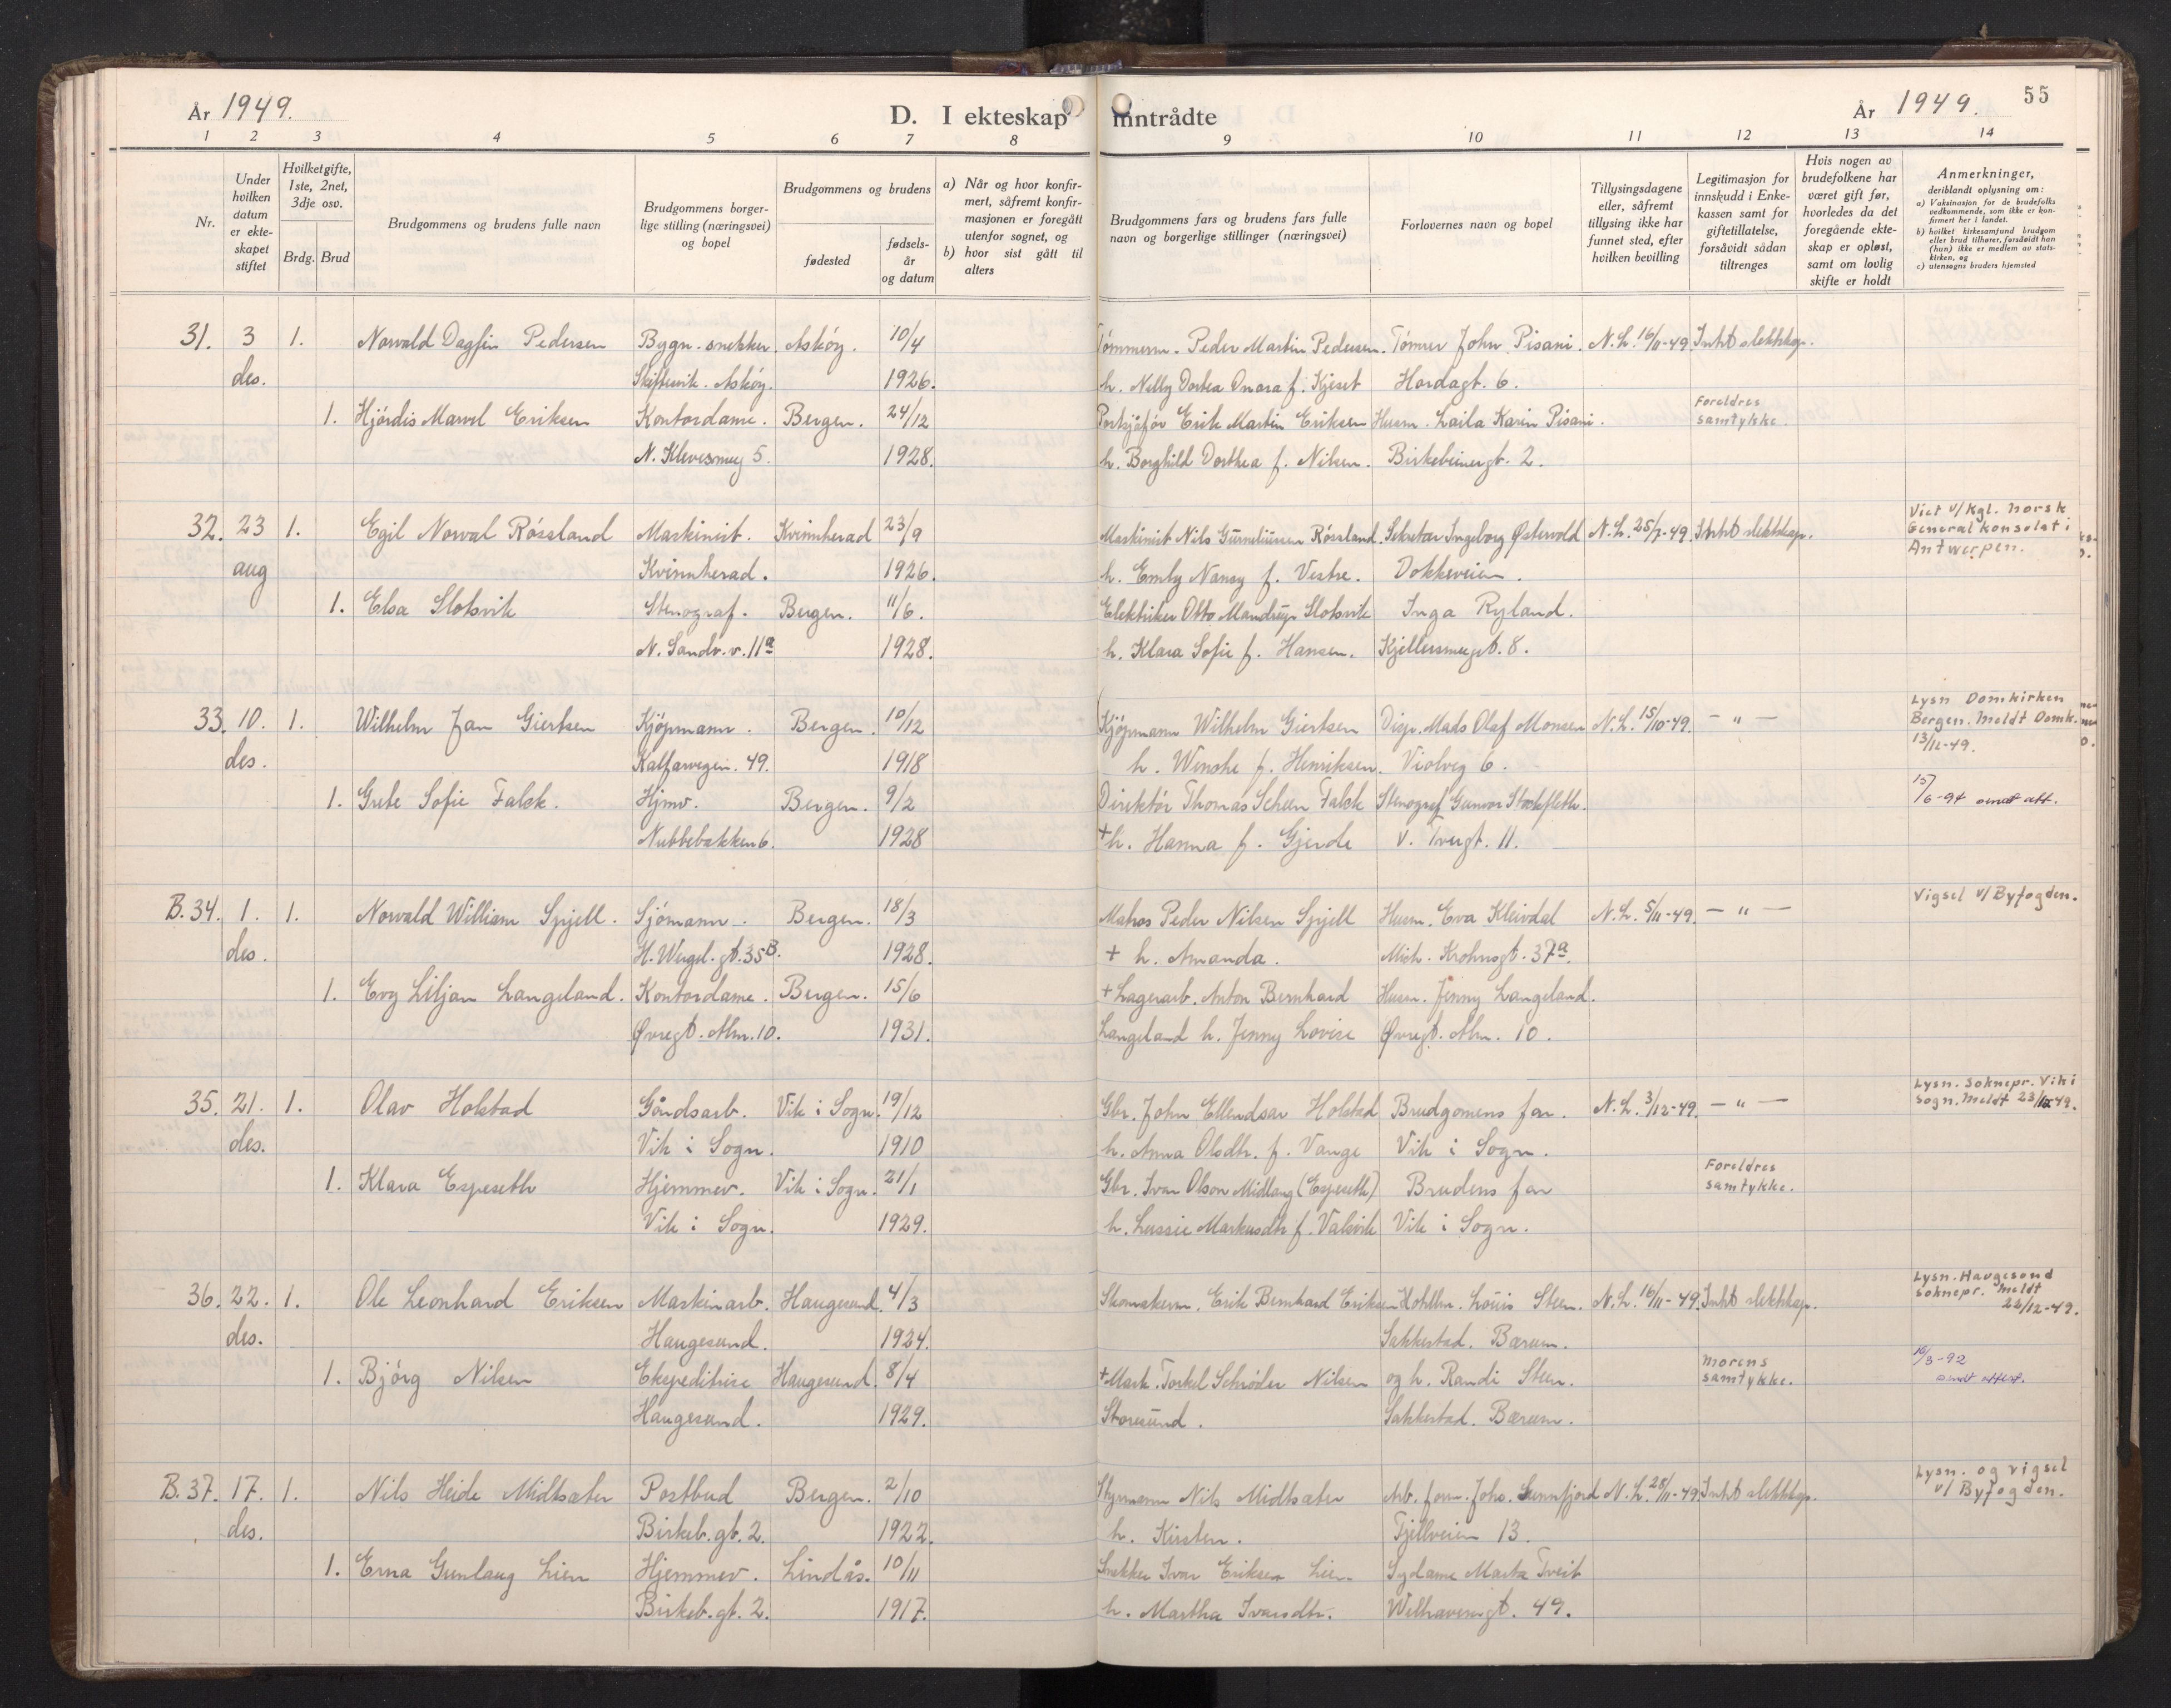 År 1949.
D. I ekteskap inntrådte
År 1949.
55
1 2 3 4 5 6 7 8 9 10 11 12 13 14
Nr.
Under hvilken datum er ekteskapet stiftet
Hvilket gifte, 1ste, 2net, 3dje osv.
Brdg. Brud
Brudgommens og brudens fulle navn
Brudgommens borgerlige stilling (næringsvei) og bopel
Brudgommens og brudens
fødested
fødselsår og datum
a) Når og hvor konfirmert, såfremt konfirmasjonen er foregått utenfor sognet, og
b) hvor sist gått til alters
Brudgommens fars og brudens fars fulle navn og borgerlige stillinger (næringsvei)
Forlovernes navn og bopel
Tillysingsdagene eller, såfremt tillysing ikke har funnet sted, efter hvilken bevilling
Legitimasjon for innskudd i Enkekassen samt for giftetillatelse, forsåvidt sådan tiltrenges
Hvis nogen av brudefolkene har været gift før, hvorledes da det foregående ekteskap er opløst, samt om lovlig skifte er holdt
Anmerkninger,
deriblandt oplysning om:
a) Vaksinasjon for de brudefolks vedkommende, som ikke er konfirmert her i landet.
b) hvilket kirkesamfund brudgom eller brud tilhører, forsåvidt han (hun) ikke er medlem av statskirken, og
c) utensogns bruders hjemsted
31. 3 1. Norvald Dagfin Pedersen Bygn. snekker. Askøy. 10/4 Tømmerm. Peder Martin Pedersen. Tømrer John Pisani. N.L. 16/11-49. Intet slektskap.
des. Skiftesvik. Askøy. 1926. h. Nelly Dortea Onara f. Kjeset Hordagt. 6.
1. Hjørdis Marvel Eriksen Kontordame. Bergen. 24/12 Erik Martin Eriksen Husm. Laila Karin Pisani. Foreldres samtykke.
N. Kleivesmug 5. 1928. h. Borghild Dorthea f. Nilsen. Birkebeinergt. 2.
32. 23 1. Egil Norval Røssland Maskinist. Kvinnherad 23/9 Maskinist Nils Gurneliussen Røssland. Sekretær Ingeborg Østervold N.L. 25/7-49. Intet slektskap. Viet v/ Kgl. norsk
General konsolat i
Antwerpen.
aug Kvinnherad. 1926. h. Emly Nancy f. Vestre. Dokkeveien.
1. Elsa Slotsvik Stenograf. Bergen. 11/6. Elektriker Otto Mandrup Slotsvik Inga Ryland.
N. Sandv.v. 11a 1928. h. Klara Sofie f. Hansen. Kjellersmugt. 8.
33. 10. 1. Wilhelm Jan Giertsen Kjøpmann. Bergen. 10/12 Kjøpmann Wilhelm Giertsen Disp. Mads Olaf Monsen N.L. 15/10-49. – " – Lysn Domkirken
Bergen. Meldt Domk.
13/12-49.
des. Kalfarvegen. 49. 1918 h. Wenche f. Henriksen. Violveg 6.
1. Grete Sofie Falck. Hjmv. Bergen. 9/2 Direktør Thomas Scheen Falck Stenograf Gunvor Stockfleth. 15/6-94 sendt att.
Nubbebakken 6. 1928 + h. Hanna f. Gjerde V. Torvgt. 11.
B. 34. 1. 1. Norvald William Spjell. Sjømann. Bergen. 18/3 Matros Peder Nilsen Spjell Husm. Eva Kleivdal N.L. 5/11-49. – " – Vigsel v/ Byfogden.
des. H. Wergel. gt. 35B. 1928. + h. Amanda. Mich. Krohnsgt. 37a.
1. Evy Liljan Langeland. Kontordame. Bergen. 15/6 + Lagerarb. Anton Bernhard Husm. Jenny Langeland.
Øvregt. Alm. 10. 1931. Langeland h. Jenny Lovise Øvregt. Alm. 10.
35. 21. 1. Olav Holstad Gårdsarb. Vik i Sogn. 19/12 Gbr. John Ellendsar Holstad Brudgomens far. N.L. 3/12-49. – " – Lysn. Soknepr. Vik i
Sogn. Meldt 23/12 49.
des. Vik i Sogn. 1910 h. Anna Olsdtr. f. Vange Vik i Sogn.
1. Klara Espeseth Hjemmev. Vik i Sogn. 21/1 Gbr. Ivar Olson Midlang (Espeseth) Brudens far Foreldres samtykke.
Vik i Sogn. 1929. h. Lussie Markusdtr f. Valsvik Vik i Sogn.
36. 22. 1. Ole Leonhard Eriksen Maskinarb. Haugesund. 4/3 Skomakerm. Erik Bernhard Eriksen Louis Steen. N.L. 16/11-49. Intet slektskap. Lysn. Haugesund
Soknepr. Meldt
22/12-49.
des. Haugesund. 1924. Sakkestad. Bærum.
1. Bjørg Nilsen Ekspeditrise Haugesund. 8/4 + Mask. Torkel Schrøder Nilsen og h. Randi Steen. Morens samtykke. 16/3-92
sendt attest.
Haugesund. 1929. Storesund. Sakkestad. Bærum.
B. 37. 17. 1. Nils Heide Midtsæter Postbud Bergen. 2/10 Styrmann Nils Midtsæter Arb. form. Johs. Sunnfjord N.L. 28/11-49. Intet slektskap. Lysn. og vigsel
v/ Byfogden.
des. Birkeb. gt. 2. 1922. h. Kirsten. Fjellveien 13.
1. Erna Gunlaug Lien Hjemmev. Lindås. 10/11 Snekker Ivar Eriksen Lien. Sydame Marta Tveit
Birkeb. gt. 2. 1917. h. Martha Ivarsdtr. Welhavensgt. 49.